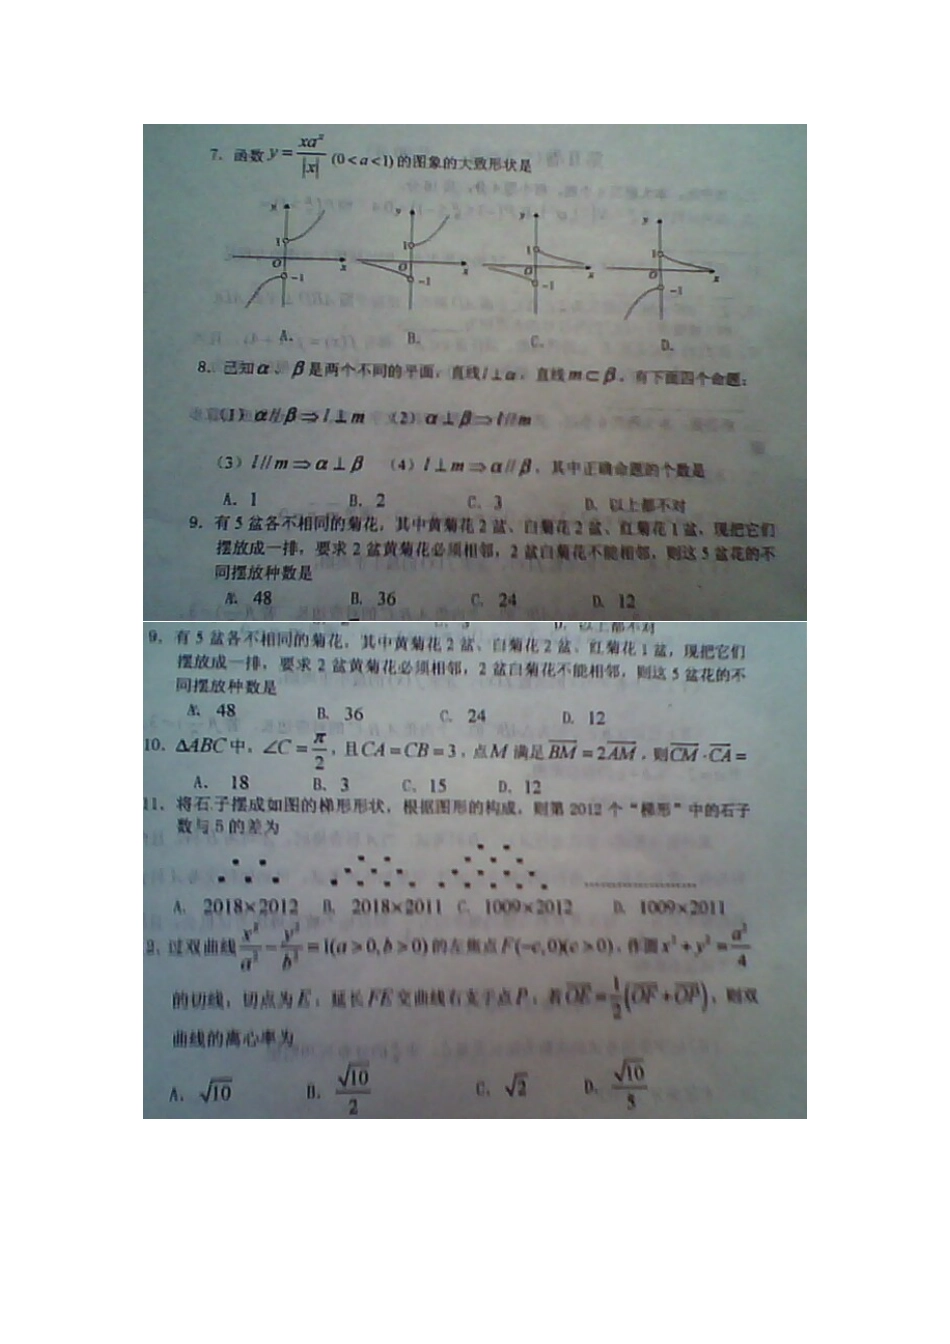 7. 函数 y = xa^x/|x| (0<a<1) 的图象的大致形状是
y 1 O x -1
y 1 O x -1
y 1 O x -1
y 1 O x -1
A. B. C. D.
8. 已知 α、β 是两个不同的平面，直线 l⊥α，直线 m⊂β，有下面四个命题：
(1) α//β⇒l⊥m (2) α⊥β⇒l//m
(3) l//m⇒α⊥β (4) l⊥m⇒α//β，其中正确命题的个数是
A. 1 B. 2 C. 3 D. 以上都不对
9. 有 5 盆各不相同的菊花，其中黄菊花 2 盆、白菊花 2 盆、红菊花 1 盆，现把它们
摆放成一排，要求 2 盆黄菊花必须相邻，2 盆白菊花不能相邻，则这 5 盆花的不
同摆放种数是
A. 48 B. 36 C. 24 D. 12
D. 以上都不对
9. 有 5 盆各不相同的菊花，其中黄菊花 2 盆、白菊花 2 盆、红菊花 1 盆，现把它们
摆放成一排，要求 2 盆黄菊花必须相邻，2 盆白菊花不能相邻，则这 5 盆花的不
同摆放种数是
A. 48 B. 36 C. 24 D. 12
10. ΔABC 中，∠C = π/2，且 CA = CB = 3，点 M 满足 BM = 2AM，则 CM · CA =
A. 18 B. 3 C. 15 D. 12
11. 将石子摆成如图的梯形形状，根据图形的构成，则第 2012 个“梯形”中的石子
数与 5 的差为
A. 2018×2012 B. 2018×2011 C. 1009×2012 D. 1009×2011
2. 过双曲线 x²/a² − y²/b² = 1(a>0,b>0) 的左焦点 F(−c,0)(c>0)，作圆 x² + y² = a²/4
的切线，切点为 E，延长 FE 交曲线右支于点 P，若 OE = 1/2(OF + OP)，则双
曲线的离心率为
A. √10 B. √10/2 C. √2 D. √10/5